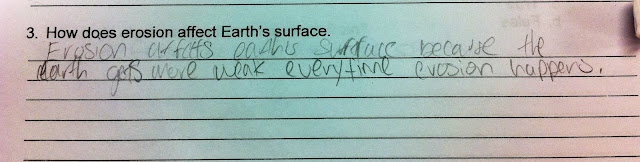 3. How does erosion affect Earth's surface.
Erosion affcts earths surface because the
earth gets more weak everytime erosion happens.